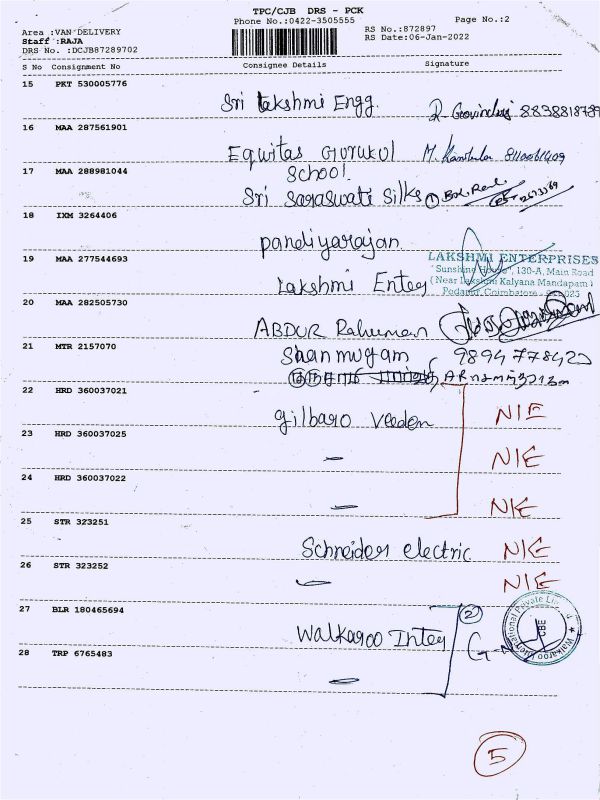 TPC/CJB DRS - PCK
Phone No.:0422-3505555
Page No.:2
Area :VAN DELIVERY
Staff :RAJA
DRS No. :DCJB87289702
RS No.:872897
RS Date:06-Jan-2022
S No Consignment No Consignee Details Signature
15 PKT 530005776
Sri Lakshmi Engg.
16 MAA 287561901
Equitas Gurukul
School
17 MAA 288981044
Sri Saraswati Silks
18 IXM 3264406
pandiyarajan
19 MAA 277544693
LAKSHMI ENTERPRISES
130-A, Main Road
(Near Lakshmi Kalyana Mandapam)
Lakshmi Enter
20 MAA 282505730
ABDUR Rahuman
21 MTR 2157070
Shanmugam
22 HRD 360037021
NIE
23 HRD 360037025
NIE
24 HRD 360037022
NIE
25 STR 323251
Schneider electric NIE
26 STR 323252
NIE
27 BLR 180465694
Walkaroo Inter
2
Walkaroo International Private
CBE
28 TRP 6765483
5